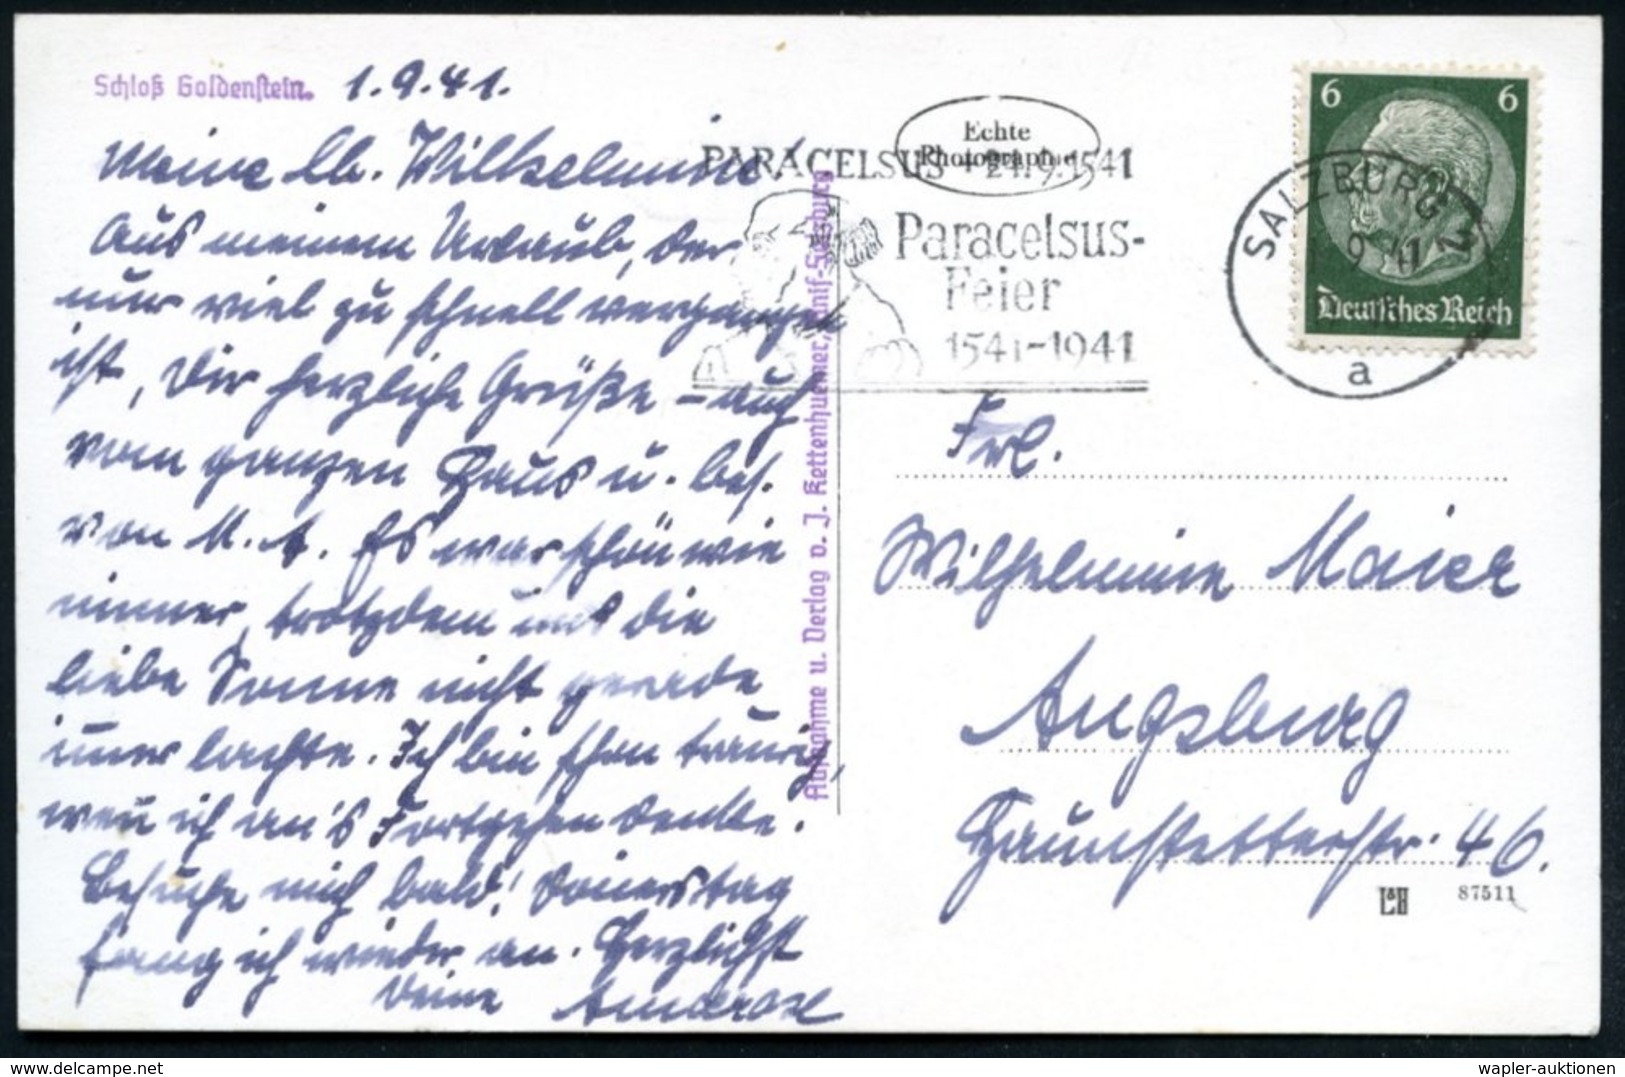 Schloß Goldenstein. 1.9.41.
Meine lb. Wilhelmine!
Aus meinem Urlaub, der
nur viel zu schnell vergangen
ist, Dir herzliche Grüße – auch
vom ganzen Haus u. bes.
von M. A. Es war schön wie
immer, trotzdem uns die
liebe Sonne nicht gerade
imer lachte. Ich bin schon traurig,
wen ich an's Fortgehen denke.
Besuche mich bald! Donerstag
fang ich wieder an. Herzlichst
Deine Annarose
Aufnahme u. Verlag v. J. Kettenhuemer, Anif-Salzburg
Echte
Photographie
PARACELSUS † 24.9.1541
Paracelsus-
Feier
1541-1941
SALZBURG 2
9 41
a
6 6
Deutsches Reich
Frl.
Wilhelmine Maier
Augsburg
Haunstetterstr. 46.
L&B 87511
www.delcampe.net
wapler-auktionen